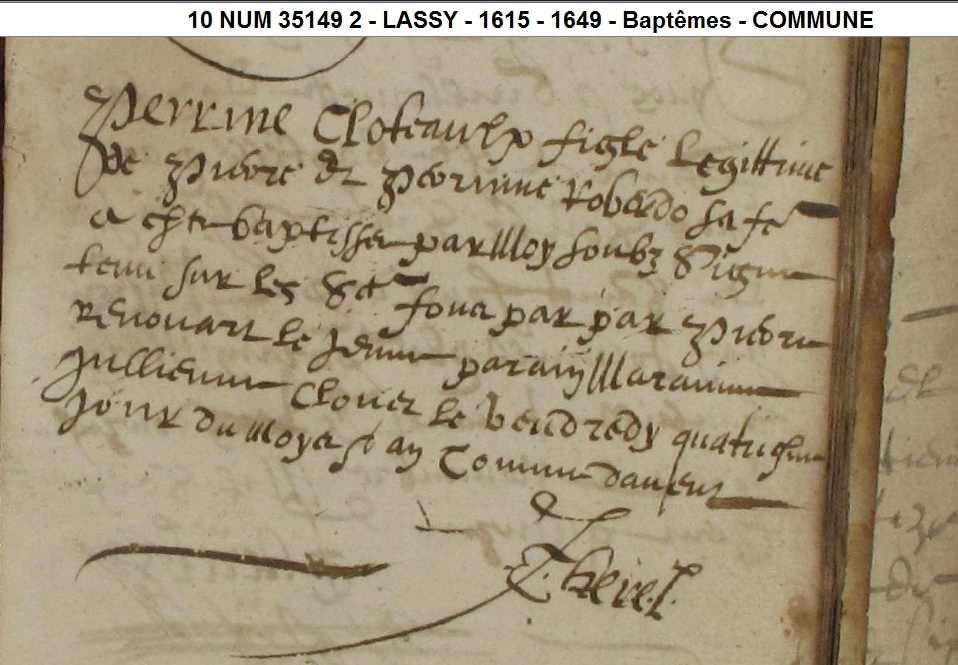 10 NUM 35149 2 - LASSY - 1615 - 1649 - Baptêmes - COMMUNE
Perrine Cloteaulx figle legittime
de Pierre et Perrinne Roberdo sa fe
a este baptissee par Moy soubz Signe
tenu sur les Sct fons par par Pierre
Renouart le Jeune parain Maraine
Jullienne Clouet le Vendredy quatriesme
Jour du moys an Comme davent